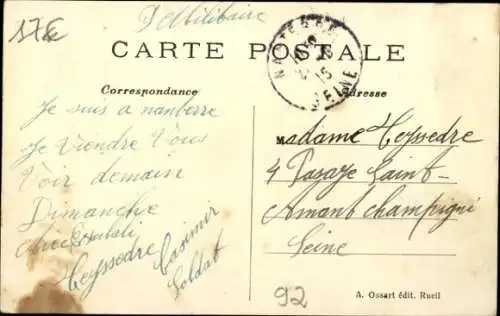 17€
D Militaire
CARTE POSTALE
NANTERRE
15
SEINE
Correspondance
Adresse
Je suis a nanterre
Je Viendre Vous
Voir demain
Dimanche
Teyssedre Casimir
Soldat
Madame Teyssedre
4 Pasaje Saint-
Amant Champigni
Seine
92
A. Ossart édit. Rueil